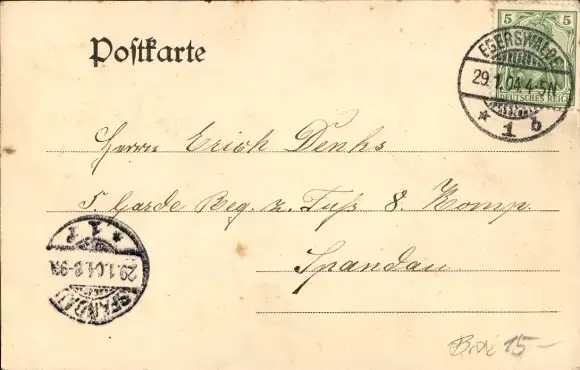 Postkarte
5 5
DEUTSCHES REICH
EBERSWALDE
29.1.04. 4-5N
* 1 b
Herrn Erich Denks
5. Garde Reg. z. Fuß 8. Komp.
Spandau
* 1 r
29.1.04. 8-9N
SPANDAU
15-